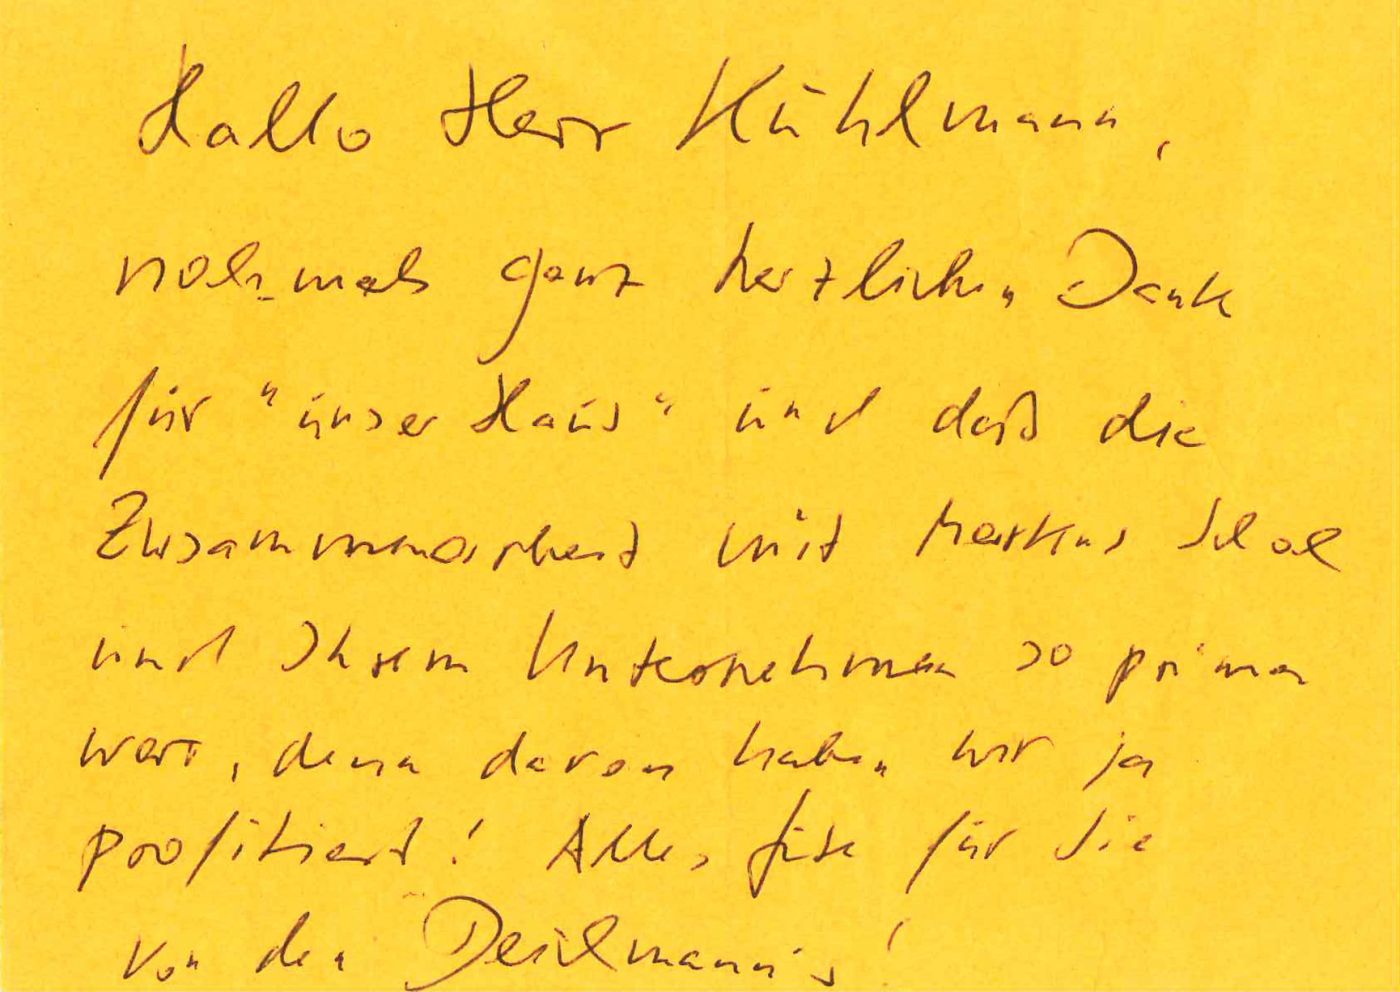 Hallo Herr Kühlmann,
nochmals ganz herzlichen Dank
für "unser Haus" und daß die
Zusammenarbeit mit Markus
und Ihrem Unternehmen so prima
war, denn davon haben wir ja
profitiert! Alles Gute für Sie
von den Deilmann's!